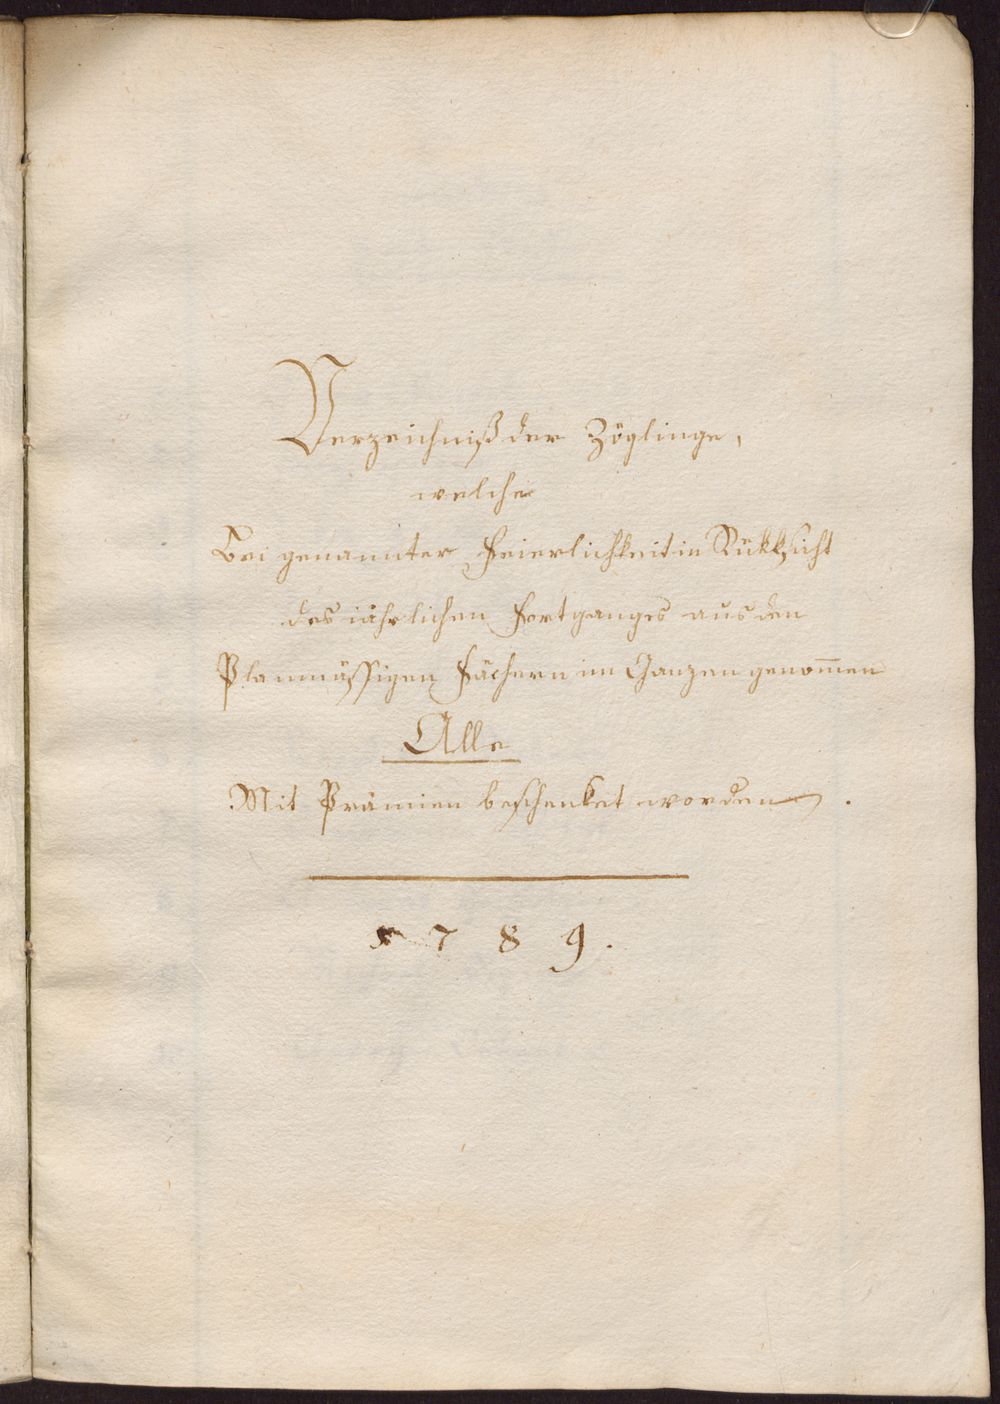 Verzeichniß der Zöglinge,
welche
Bei genannter Feierlichkeit in Rükksicht
des iährlichen Fortganges aus den
Planmässigen Fächern im Ganzen genom̅en
Alle
Mit Prämien beschenket worden.
1789.